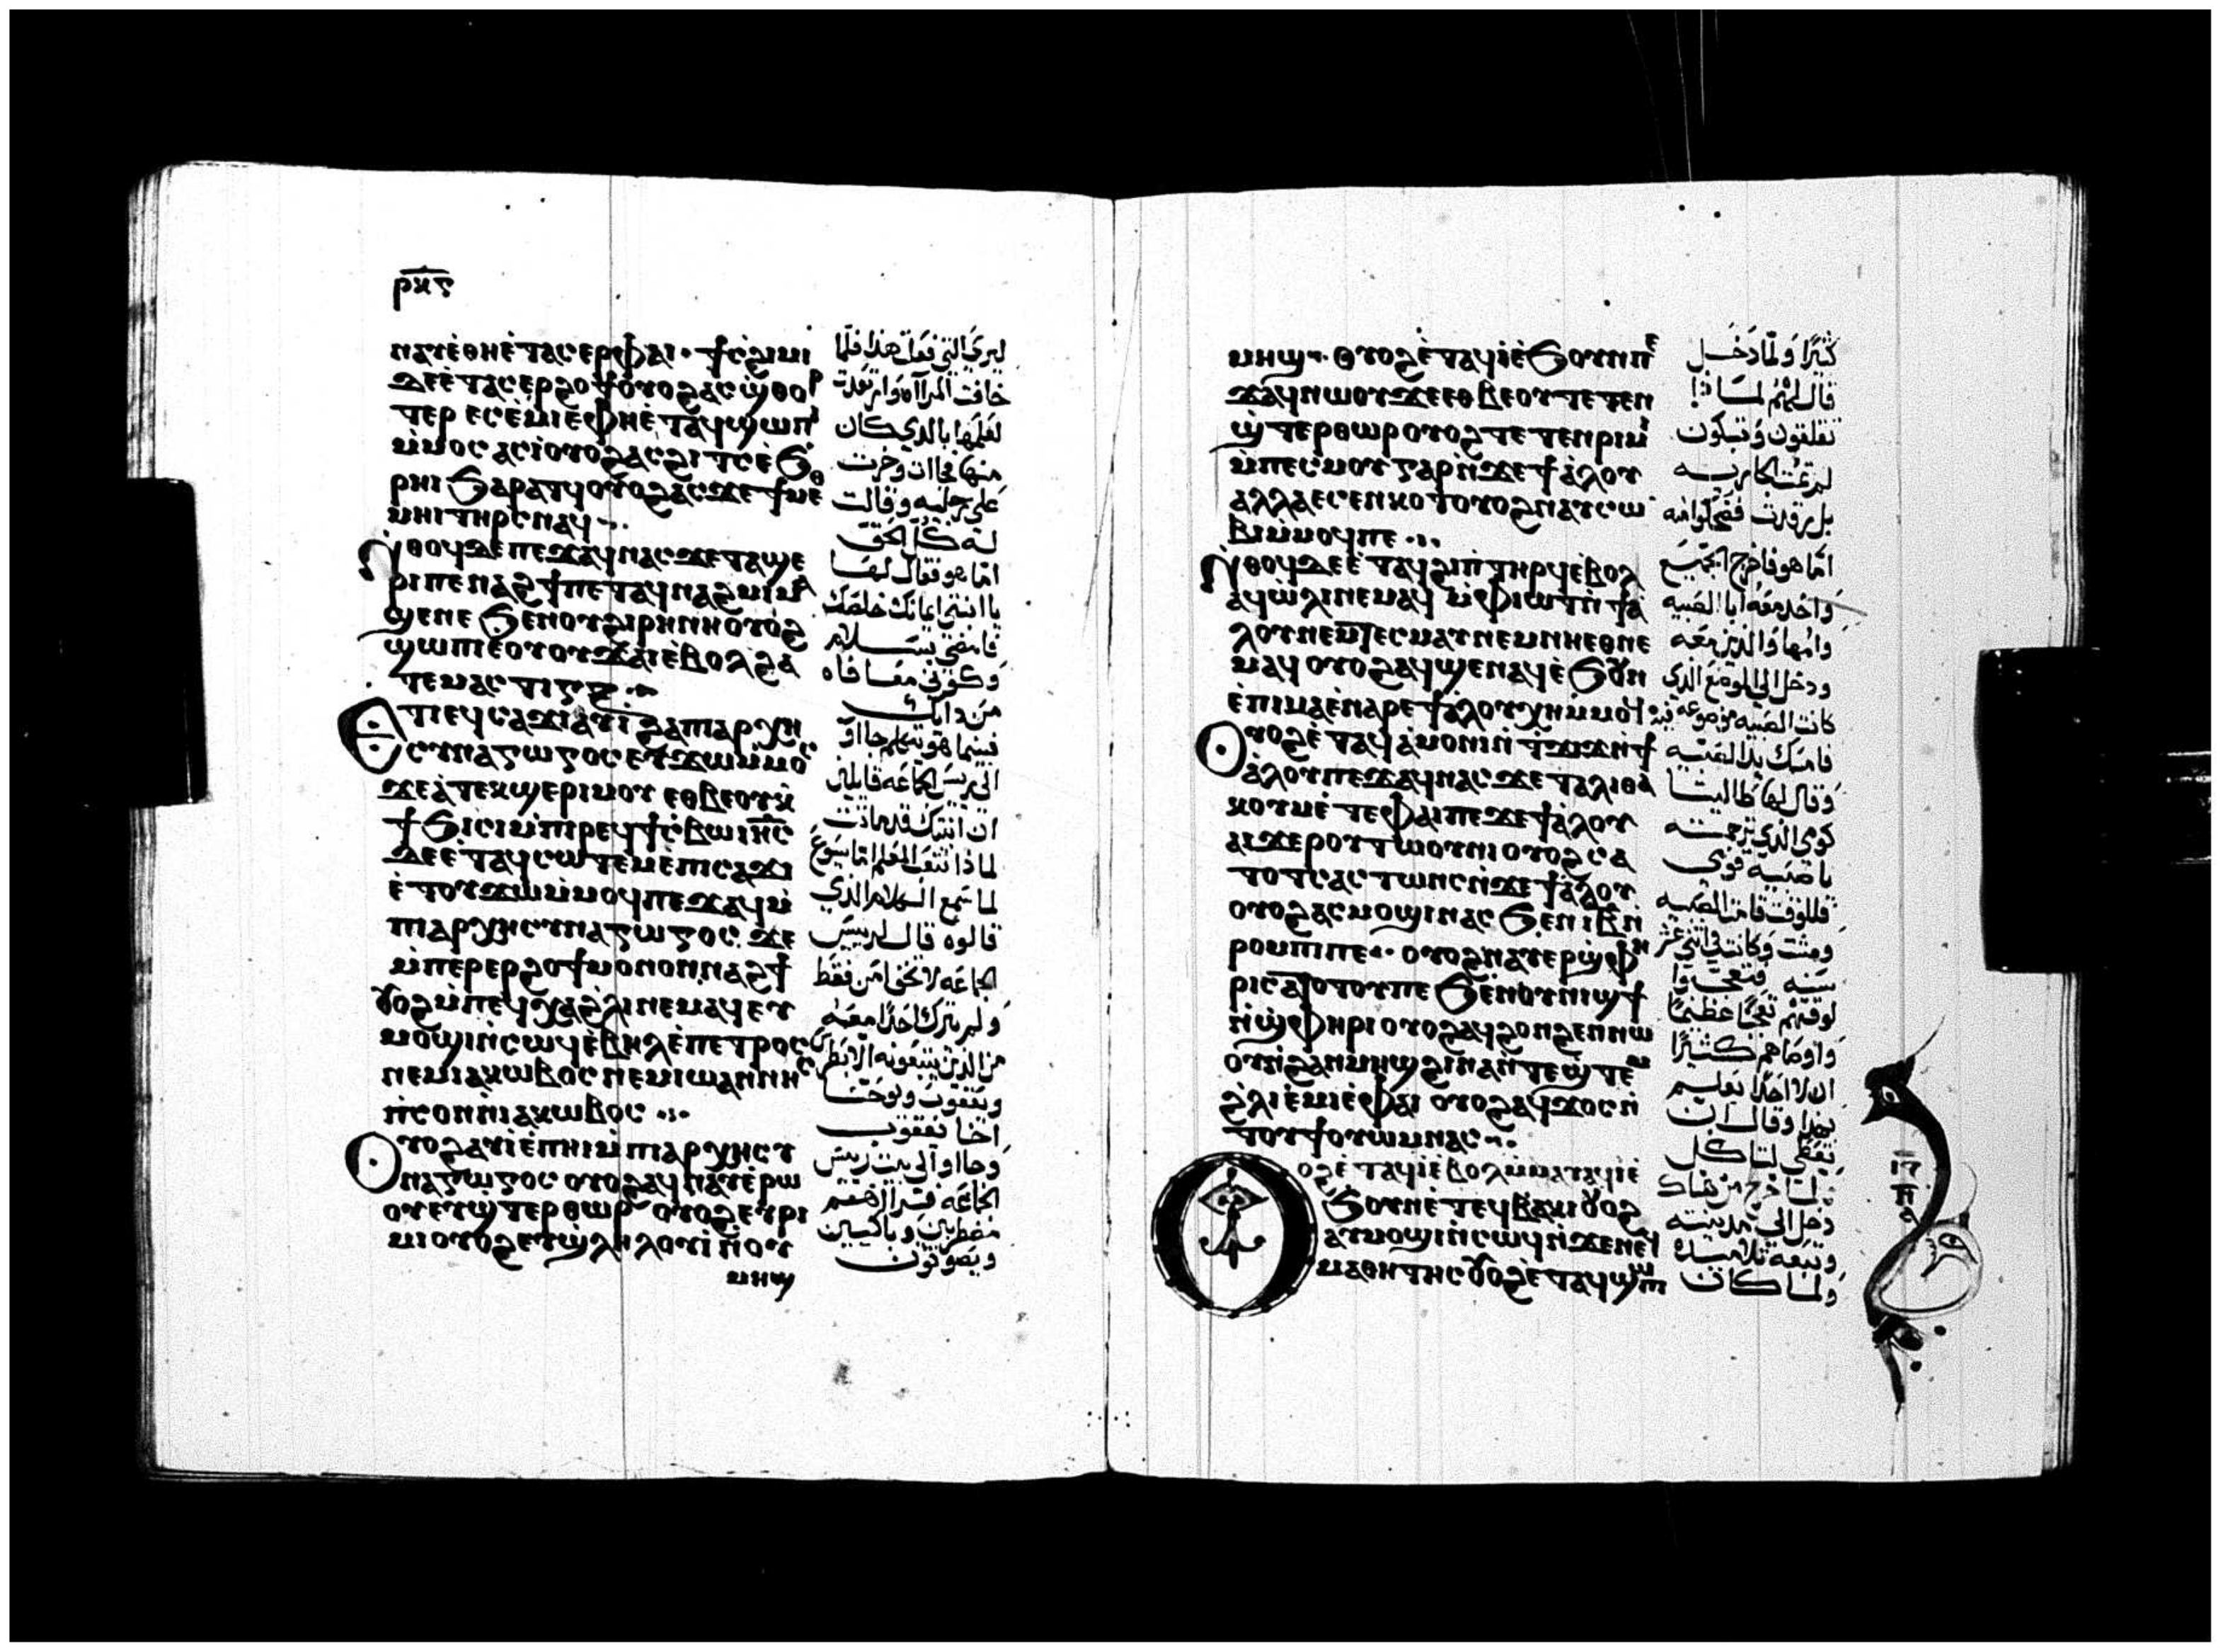 ⲣⲕⲋ
ⲛⲁⲩⲉ̀ⲑⲏⲉ̀ⲧⲁⲥⲉⲣⲫⲁⲓ · ϯⲥϩⲓⲙⲓ
ⲇⲉⲉ̀ⲧⲁⲥⲉⲣϩⲟϯⲟⲩⲟϩⲁⲥϣⲑⲟⲣ
ⲧⲉⲣ ⲉⲥⲉ̀ⲙⲓⲉⲫⲏⲉ̀ⲧⲁϥϣⲱⲡⲓ
ⲙ̀ⲙⲟⲥ ⲁⲥⲓ̀ⲟⲩⲟϩⲁⲥϩⲓⲧⲥⲉ̀ϧ
ⲣⲏⲓ ϧⲁⲣⲁⲧϥⲟⲩⲟϩⲁⲥϫⲉϯⲙⲉⲑ
ⲙⲏⲓ ⲧⲏⲣⲥⲛⲁϥ
ⲛ̀ⲑⲟϥⲇⲉⲡⲉϫⲁϥⲛⲁⲥϫⲉⲧⲁϣⲉ
ⲣⲓⲡⲉⲛⲁϩϯⲡⲉⲧⲁϥⲛⲁϩⲙⲓ ⲙⲁ
ϣⲉⲛⲉ ϧⲉⲛⲟⲩϩⲓⲣⲏⲛⲏⲟⲩⲟϩ
ϣⲱⲡⲓⲉⲟⲩⲟⲩϫⲁⲓⲉ̀ⲃⲟⲗϩⲁ
ⲧⲉⲙⲁⲥⲧⲓⲅⲝ
ⲉⲧⲓⲉϥⲥⲁϫⲓⲁⲩⲓ̀ ϩⲁⲡⲁⲣⲭⲏ
ⲥⲩⲛⲁⲅⲱⲅⲟⲥ ⲉⲩϫⲱⲙ̀ⲙⲟⲥ
ϫⲉⲁ̀ⲧⲉⲕϣⲉⲣⲓⲙⲟⲩ ⲉⲑⲃⲉⲟⲩⲕ̀
ϯϧⲓⲥⲓⲙ̀ⲡⲣⲉϥϯⲥⲃⲱ ⲓⲏⲥ
ⲇⲉⲉ̀ⲧⲁϥⲥⲱⲧⲉⲙⲉⲡⲓⲥⲁϫⲓ
ⲉ̀ⲧⲟⲩϫⲱⲙ̀ⲙⲟϥⲡⲉϫⲁϥⲙ̀
ⲡⲁⲣⲭⲏⲥⲩⲛⲁⲅⲱⲅⲟⲥ ϫⲉ
ⲙ̀ⲡⲉⲣⲉⲣϩⲟϯⲙⲟⲛⲟⲛⲛⲁϩϯ
ⲟⲩⲟϩⲙ̀ⲡⲉϥⲭⲁϩ̀ⲗⲓⲛⲉⲙⲁϥⲉⲩ
ⲙⲟϣⲓⲛ̀ⲥⲱϥⲉ̀ⲃⲏⲗⲉ̀ⲡⲉⲧⲣⲟⲥ
ⲛⲉⲙⲓⲁⲕⲱⲃⲟⲥ ⲛⲉⲙⲓⲱⲁⲛⲛⲏⲥ
ⲡ̀ⲥⲟⲛⲛ̀ⲓⲁⲕⲱⲃⲟⲥ
ⲟⲩⲟϩⲁⲩⲓ̀ⲉ̀ⲡⲏⲓⲙ̀ⲡⲁⲣⲭⲏⲥⲩ
ⲛⲁⲅⲱⲅⲟⲥ ⲟⲩⲟϩⲁϥⲛⲁⲩⲉ̀ⲣⲱ
ⲟⲩⲉⲩϣⲧⲉⲣⲑⲱⲣ ⲟⲩⲟϩⲉⲩⲣⲓ
ⲙⲓⲟⲩⲟϩⲉⲩϣ̀ⲗⲏⲗⲟⲩⲓ̀ ⲛ̀ⲟⲩ
ⲙⲏϣ
ليري التي فعلت هذا فلما
خافت المراه وارتعدت
لعلمها بالذي كان
منها فجات وخرت
على رجليه وقالت
له كل الحق
اما هو فقال لها
يا ابنتي ايمانك خلصك
فامضي بسلام
وكوني معافاه
من دايك
فبينما هو يتكلم جااو
الى ريس الجماعه قايلين
ان ابنتك قد ماتت
لماذا تتعب المعلم اما يسوع
لما سمع الكلام الذي
قالوه قال لرييس
الجماعه لا تخف امن فقط
ولم يترك احدًا معه
من الذين يتبعونه الا بطرس
ويعقوب ويوحنا
اخا يعقوب
وجااو الى بيت رييس
الجماعه فنرا انهم
مضطربين وباكيين
ويصوتون
ⲙⲏϣ · ⲟⲩⲟϩⲉ̀ⲧⲁϥⲓ̀ⲉ̀ϧⲟⲩⲛⲡⲉ
ϫⲁϥⲛⲱⲟⲩϫⲉⲉⲑⲃⲉⲟⲩⲧⲉⲧⲉⲛ
ϣ̀ⲧⲉⲣⲑⲱⲣⲟⲩⲟϩⲧⲉⲧⲉⲛⲣⲓⲙⲓ
ⲙ̀ⲡⲉⲥⲙⲟⲩⲅⲁⲣⲛ̀ϫⲉϯⲁ̀ⲗⲟⲩ
ⲁⲗⲗⲁⲉⲥⲉⲛⲕⲟⲧⲟⲩⲟϩⲛⲁⲩⲥⲱ
ⲃⲓⲙ̀ⲙⲟϥⲡⲉ
ⲛ̀ⲑⲟϥⲇⲉⲉ̀ⲧⲁϥϩⲓⲡ̀ⲧⲏⲣϥⲉ̀ⲃⲟⲗ
ⲁϥⲱ̀ⲗⲓⲛⲉⲙⲁϥ ⲙ̀ⲫⲓⲱⲧⲛ̀ϯⲁ̀
ⲗⲟⲩⲛⲉⲙⲧⲉⲥⲙⲁⲩⲛⲉⲙⲛⲏⲉⲑⲛⲉ
ⲙⲁϥ ⲟⲩⲟϩⲁϥϣⲉⲛⲁϥⲉ̀ϧⲟⲩⲛ
ⲉ̀ⲡⲓⲙⲁⲉ̀ⲛⲁⲣⲉϯⲁ̀ⲗⲟⲩⲭⲏⲙ̀ⲙⲟϥ
ⲟⲩⲟϩⲉ̀ⲧⲁϥⲁ̀ⲙⲟⲛⲓⲛ̀ⲧ̀ϫⲓϫⲛ̀ϯ
ⲁ̀ⲗⲟⲩⲡⲉϫⲁϥⲛⲁⲥϫⲉⲧⲁⲗⲓⲑⲁ
ⲕⲟⲩⲙⲉ̀ⲧⲉⲫⲁⲓⲡⲉϫⲉϯⲁ̀ⲗⲟⲩ
ⲁⲓϫⲉⲣⲟⲧⲱⲟⲩⲛⲓⲟⲩⲟϩⲥⲁ
ⲧⲟⲧⲥⲁⲥⲧⲱⲛⲥⲛ̀ϫⲉϯⲁ̀ⲗⲟⲩ
ⲟⲩⲟϩⲁⲥⲙⲟϣⲓⲛⲁⲥ ϧⲉⲛⲓⲃⲛ̀
ⲣⲟⲙⲡⲓⲡⲉ ⲟⲩⲟϩⲛⲁⲩⲉⲣϣ̀ⲫⲏ
ⲣⲓⲥⲁⲧⲟⲧⲟⲩⲡⲉ ϧⲉⲛⲟⲩⲛⲓϣϯ
ⲛ̀ϣ̀ⲫⲏⲣⲓⲟⲩⲟϩⲁϥϩⲟⲛϩⲉⲛⲛⲱ
ⲟⲩⲛ̀ϩⲁⲛⲙⲏϣϩⲓⲛⲁⲛ̀ⲧⲉϣⲧⲉⲙ
ϩ̀ⲗⲓⲉ̀ⲙⲓⲉ̀ⲫⲁⲓ ⲟⲩⲟϩⲁϥϫⲟⲥⲛ̀
ⲧⲟⲩϯⲟⲩⲱⲙⲛⲁⲥ
ⲟⲟϩⲉ̀ⲧⲁϥⲓ̀ⲉ̀ⲃⲟⲗⲙ̀ⲙⲁⲩⲁϥⲓ̀ⲉ̀
ϧⲟⲩⲛⲉ̀ⲧⲉϥⲃⲁⲕⲓ ⲟⲩⲟϩ
ⲁⲩⲙⲟϣⲓⲛ̀ⲥⲱϥⲛ̀ϫⲉⲛⲉϥ
ⲙⲁⲑⲏⲧⲏⲥ ⲟⲩⲟϩⲉ̀ⲧⲁϥϣⲱⲡⲓ
كثيرًا ولما دخل
قال لهم لماذا
تقلقون وتبكون
لم تمت الجاريه
بل رقدت فضحكوا منه
اما هو فاخرج الجميع
واخذ معه ابا الصبيه
وامها والذين معه
ودخل الى الموضع الذي
كانت الصبيه موضوعه فيه
فامسك يد الصبيه
وقال لها طاليثا
قومي الذي ترجمته
يا صبيه قومي
فللوقت قامت الصبيه
ومشت وكانت في اثني عشر
سنه فتعجبوا
لوقتهم تعجبًا عظيمًا
واوصاهم كثيرًا
ان لا احدًا يعلم
بهذا وقال ان
تعطي لتاكل
ولما خرج من هناك
دخل الى مدينته
وتبعه تلاميذه
ولما كان
ⲓⲍ
ⲡ